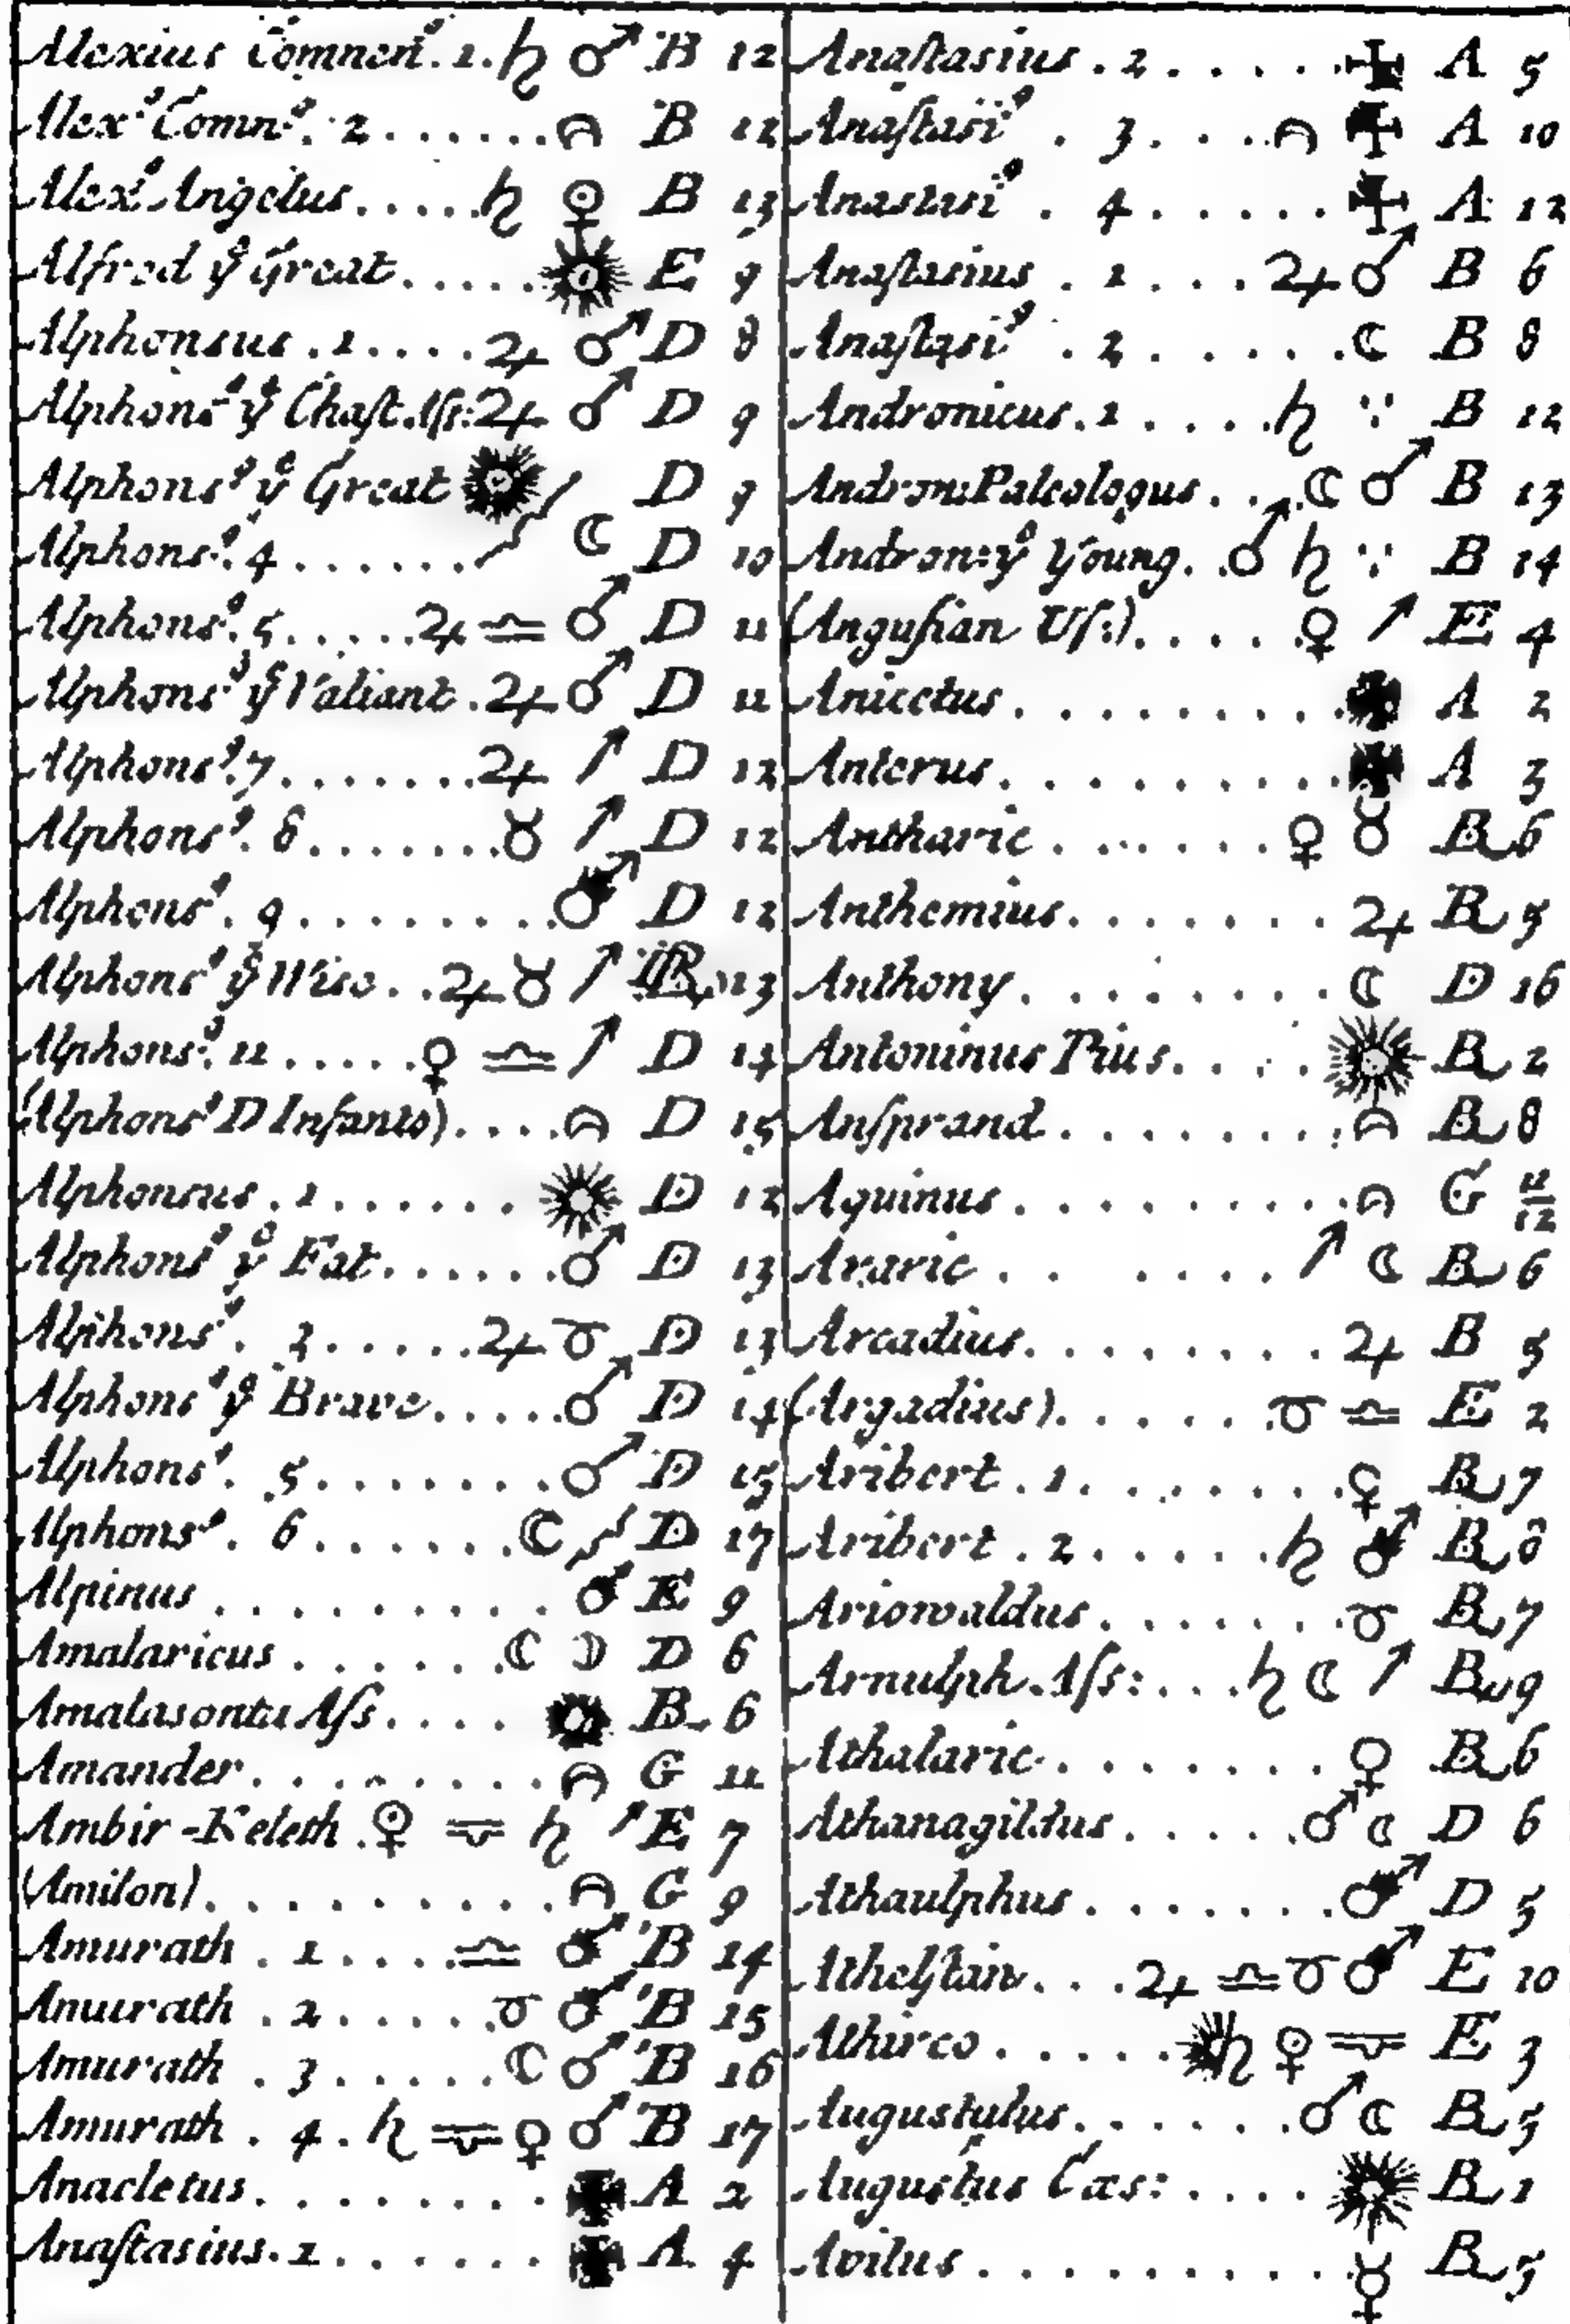 Alexius Comnen⁹. 1. ♄ ♂ B 12
Alex⁹ Comn⁹. 2 . . . . . . B 12
Alex⁹ Angelus . . . . . ♄ ☿ B 13
Alfred yᵉ Great . . . . . ☉ E 9
Alphonsus . 1 . . . . ♃ ♂ D 8
Alphons⁹ yᵉ Chaſt. Aſs: ♃ ♂ D 9
Alphons⁹ yᵉ Great ☉ D 9
Alphons⁹. 4 . . . . . . ☾ D 10
Alphons⁹. 5 . . . . . ♃ ♎ ♂ D 11
Alphons⁹ yᵉ Valiant . ♃ ♂ D 11
Alphons⁹. 7 . . . . . . . ♃ ↗ D 12
Alphons⁹. 8 . . . . . . . ♉ ↗ D 12
Alphons⁹. 9 . . . . . . . . . ♂ D 12
Alphons⁹ yᵉ Wise . . ♃ ♉ ↗ 13
Alphons⁹. 11 . . . . . ♀ ♎ ↗ D 14
(Alphons⁹ D Infante) . . . . D 15
Alphonsus . 1 . . . . . . ☉ D 12
Alphons⁹ yᵉ Fat . . . . . . ♂ D 13
Alphons⁹. 3 . . . . . ♃ ♉ D 13
Alphons⁹ yᵉ Brave . . . . . ♂ D 14
Alphons⁹. 5 . . . . . . . . ♂ D 15
Alphons⁹. 6 . . . . . . ☾ D 17
Alpinus . . . . . . . . . . ♂ E 9
Amalaricus . . . . . . ☾ ☽ D 6
Amalasonta Aſs . . . . ☉ B 6
Amander . . . . . . . . . G 11
Ambir-Keleth . ♀ ♄ ↗ E 7
(Amilon) . . . . . . . . . . G 9
Amurath . 1 . . . . ♎ ♂ B 14
Amurath . 2 . . . . . ♉ ♂ B 15
Amurath . 3 . . . . . . ☾ ♂ B 16
Amurath . 4 . ♄ ♀ ♂ B 17
Anacletus . . . . . . . . ✠ A 2
Anaſtasius . 1 . . . . . . ✠ A 4
Anaſtasius . 2 . . . . . ✠ A 5
Anaſtasi⁹ . 3 . . . ✠ A 10
Anastasi⁹ . 4 . . . . . ✠ A 12
Anaſtasius . 1 . . . ♃ ♂ B 6
Anaſtasi⁹ . 2 . . . . . . ☾ B 8
Andronicus . 1 . . . . ♄ B 12
Andron: Paleologus . . . ☾ ♂ B 13
Andron: yᵉ Young . . ♂ ♄ B 14
(Anguſian Uſ:) . . . . ♀ ↗ E 4
Anicetus . . . . . . . . . ✠ A 2
Anterus . . . . . . . . . . ✠ A 3
Antharic . . . . . . ♀ ♉ B 6
Anthemius . . . . . . . ♃ B 5
Anthony . . . . . . . . ☾ D 16
Antoninus Pius . . . . ☉ B 2
Anſprand . . . . . . . . B 8
Aquinus . . . . . . . . . G 11/12
Araric . . . . . . . ↗ ☾ B 6
Arcadius . . . . . . . . ♃ B 5
(Argadius) . . . . . ♉ ♎ E 2
Aribert . 1 . . . . . . . . ♀ B 7
Aribert . 2 . . . . . ♄ ♂ B 8
Ariowaldus . . . . . . . ♉ B 7
Arnulph . Aſs: . . . ♄ ☾ ↗ B 9
Athalaric . . . . . . . ♀ B 6
Athanagildus . . . . . ♂ ☾ D 6
Athaulphus . . . . . . . ♂ D 5
Athelſtan . . . ♃ ♎ ♉ ♂ E 10
Athirco . . . . . ☉ ♄ ♀ E 3
Augustulus . . . . . . ♂ ☾ B 5
Augustus Cæs: . . . . ☉ B 1
Avitus . . . . . . . . . . ☿ B 5